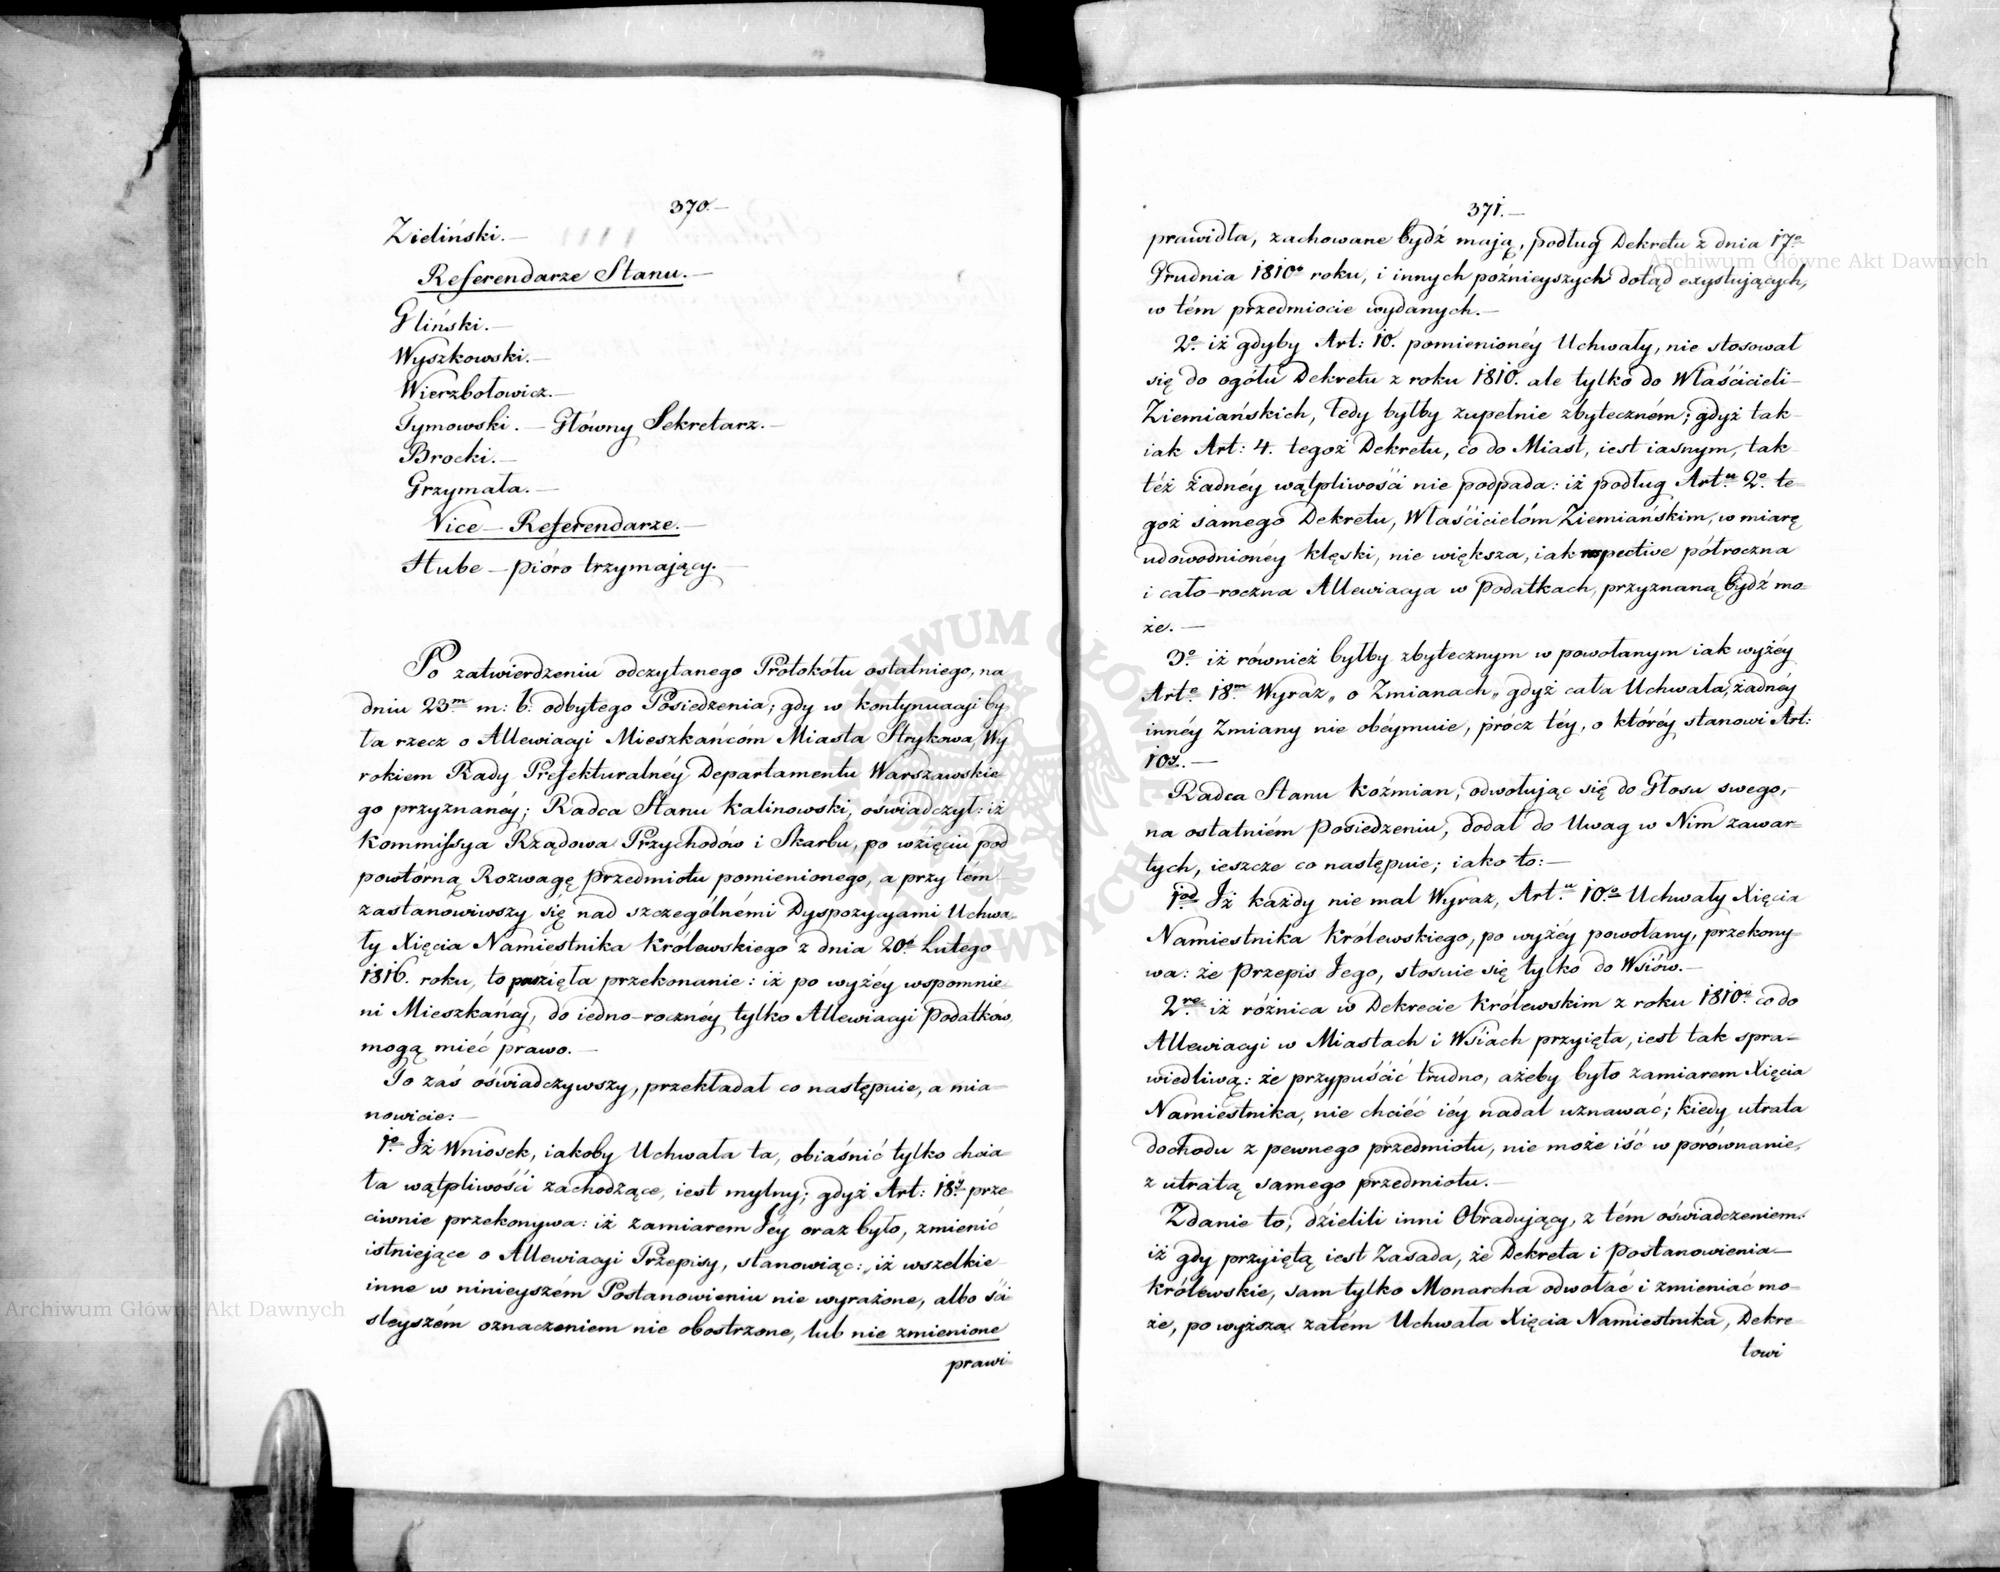 370.—
Zieliński.—
Referendarze Stanu.—
Gliński.—
Wyszkowski.—
Wierzbołowicz.—
Tymowski.— Główny Sekretarz.—
Brocki.—
Grzymała.—
Vice-Referendarze.—
Hube — pióro trzymający.—
Po zatwierdzeniu odczytanego Protokółu ostatniego, na
dniu 23m m: b: odbytego Posiedzenia; gdy w kontynuacyi by
ła rzecz o Allewiacyi Mieszkańcóm Miasta Strykowa, Wy
rokiem Rady Prefekturalnéy Departamentu Warszawskie
go przyznanéy; Radca Stanu Kalinowski, oświadczył: iż
Kommissya Rządowa Przychodów i Skarbu, po wzięciu pod
powtórną Rozwagę przedmiotu pomienionego, a przy tém
zastanowiwszy się nad szczególnémi Dyspozycyami Uchwa-
ły Xięcia Namiestnika Królewskiego z dnia 20o Lutego
1816. roku, to powzięła przekonanie: iż po wyżéy wspomnie-
ni Mieszkáńcy, do iedno-rocznéy tylko Allewiacyi Podatków,
mogą mieć prawo.—
To zaś oświadczywszy, przekładał co następuie, a mia-
nowicie:—
1o Iż Wniosek, iakoby Uchwała ta, obiaśnić tylko chcia-
ła wątpliwości zachodzące, iest mylny; gdyż Art: 18y prze-
ciwnie przekonywa: iż zamiarem Jéy oraz było, zmienić
istniejące o Allewiacyi Przepisy, stanowiąc: „iż wszelkie
inne w ninieyszém Postanowieniu nie wyrażone, albo ści-
sleyszém oznaczeniem nie obostrzone, lub nie zmienione
prawi-
371.—
prawidła, zachowane bydź mają, podług Dekretu z dnia 17o
Grudnia 1810o roku, i innych poźnieyszych dotąd exystujących,
w tém przedmiocie wydanych.—
2o iż gdyby Art: 10. pomienionéy Uchwały, nie stosował
się do ogółu Dekretu z roku 1810. ale tylko do Właścicieli
Ziemiańskich, tedy byłby zupełnie zbyteczném; gdyż tak
iak Art: 4. tegoż Dekretu, co do Miast, iest iasnym, tak
téż żadnéy wątpliwości nie podpada: iż podług Art.u 2o te-
goż samego Dekretu, Właścicielóm Ziemiańskim, w miarę
udowodnionéy klęski, nie większa, iak respective półroczna
i cało-roczna Allewiacya w Podatkach, przyznaną bydź mo-
że.—
3o iż również byłby zbytecznym w powołanym iak wyżéy
Arte 18m Wyraz „o Zmianach„ gdyż cała Uchwała, żadnéy
innéy Zmiany nie obéymuie, prócz téy, o któréy stanowi Art:
10y.—
Radca Stanu Koźmian, odwołując się do Głosu swego,
na ostatniém Posiedzeniu, dodał do Uwag w Nim zawar-
tych, ieszcze co następuie; iako to:—
1od Iż każdy nie mal Wyraz, Art.u 10o Uchwały Xięcia
Namiestnika Królewskiego, po wyżéy powołany, przekony-
wa: że Przepis Jego, stosuie się tylko do Wsiów.—
2re iż różnica w Dekrecie Królewskim z roku 1810o co do
Allewiacyi w Miastach i Wsiach przyięta, iest tak spra-
wiedliwą: że przypuścić trudno, ażeby było zamiarem Xięcia
Namiestnika, nie chcieć iéy nadal uznawać; kiedy utrata
dochodu z pewnego przedmiotu, nie może iść w porównanie,
z utratą samego przedmiotu.—
Zdanie to, dzielili inni Obradujący, z tém oświadczeniem:
iż gdy przyiętą iest Zasada, że Dekreta i Postanowienia
Królewskie, sam tylko Monarcha odwołać i zmieniać mo-
że, po wyższa zatém Uchwała Xięcia Namiestnika, Dekre-
towi
Archiwum Główne Akt Dawnych
Archiwum Główne Akt Dawnych
ARCHIWUM GŁÓWNE AKT DAWNYCH